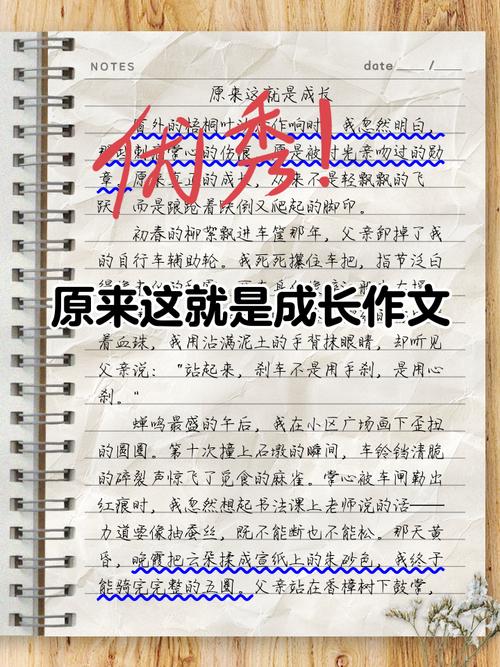 NOTES
date ___ /___
原来这就是成长
窗外的梧桐叶沙沙作响时，我忽然明白，
那些刺 掌心的伤痕，原是被时光亲吻过的勋
章。原来真正的成长，从来不是轻飘飘的飞
跃，而是踉跄着跌倒又爬起的脚印。
优秀！
初春的柳絮飘进车筐那年，父亲卸掉了我
的自行车辅助轮。我死死攥住车把，指节泛白
原来这就是成长作文
着血珠，我用沾满泥土的手背抹眼睛，却听见
父亲说："站起来，刹车不是用手刹，是用心
刹。"
蝉鸣最盛的午后，我在小区广场画下歪扭
的圆圈。第十次撞上石墩的瞬间，车铃铛清脆
的碎裂声惊飞了觅食的麻雀。掌心被车闸勒出
红痕时，我忽然想起书法课上老师说的话——
力道要像抽蚕丝，既不能断也不能松。那天黄
昏，晚霞把云朵揉成宣纸上的朱砂色，我终于
能骑完完整的五圈。父亲站在香樟树下鼓掌，